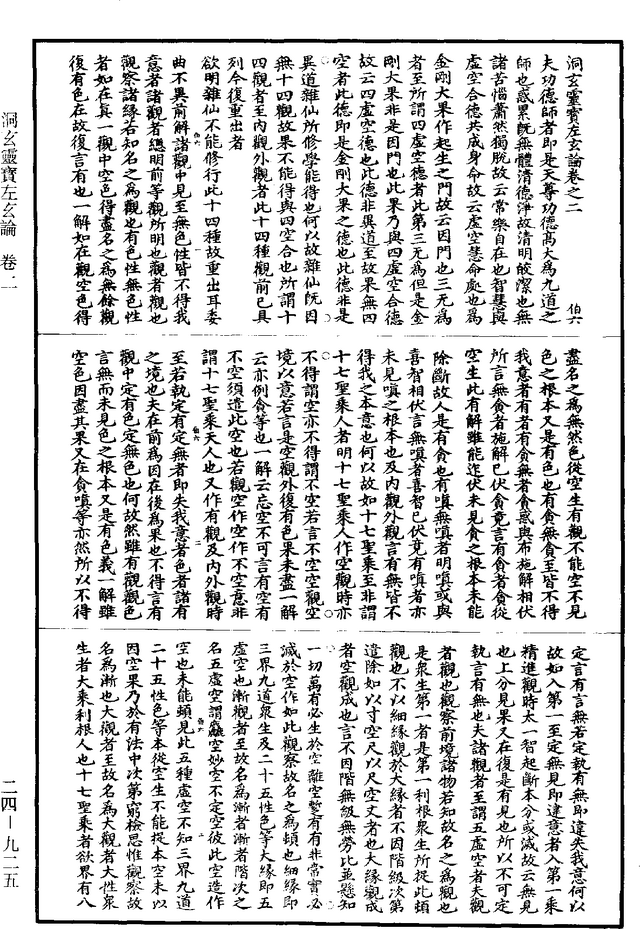 洞玄靈寶左玄論卷之二
伯六
夫功德師者即是天尊功德高大為九道之
師也惑累既無體清德淨故清明皎潔也無
諸苦惱蕭然獨脫故云常樂自在也智慧與
虛空合德共成身命故云虛空慧命處也為
金剛大果作起生之門故云因門也三无為
者至所謂四虛空德者此第三无為但是金
剛大果非是因門也此果乃與四虛空合德
故云四虛空德也此德非異道至故果無四
空者此德即是金剛大果之德也此德非是
異道雜仙所修學能得也何以故雜仙既因
無十四觀故果不能得與四空合也所謂十
四觀者至內觀外觀者此十四種觀前已具
列今復重出者
欲明雜仙不能修行此十四種故重出耳委
曲不異前解諸觀中見至無色性皆不得我
意者諸觀者總明前等觀所明也觀者觀也
觀察諸緣若知名之為觀也有色性無色性
者如在真一觀中空色得盡名之為無餘觀
復有色在故復言有也一解如在觀空色得
盡名之為無然色從空生有觀不能空不見
色之根本又是有色也有貪無貪至皆不得
我意者有者有貪無者貪惑與布施解相伏
所言無貪者施解已伏貪竟言有貪者貪從
空生此有解雖能迮伏未見貪之根本未能
除斷故人是有貪也有嗔無嗔者明嗔或與
喜智相伏言無嗔者喜智已伏竟有嗔者亦
未見嗔之根本也及內觀外觀言有無皆不
得我之本意也何以故如十七聖乘至非謂
十七聖乘人者明十七聖乘人作空觀時亦
不得謂空亦不得謂不空若言不空空觀空
境以意若言是空觀外復有色果未盡一解
云亦例貪等也一解云忘空不可言有空有
不空須遣此空也若觀空作空作不空意非
謂十七聖乘天人也又作有觀及內外觀時
至若執定有定無者即失我意者色者諸有
之境也夫在前為因在後為果也不得言有
觀中定有色定無色也何故然雖有觀觀色
言無而未見色之根本又是有色義一解雖
空色因盡其果又在貪嗔等亦然所以不得
定言有言無若定執有無即違失我意何以
故如入第一至定無見即建意者入第一乘
精進觀時太一智起斷本分或滅故云無見
也上分見果又在復是有見也所以不可定
執言有無也夫諸觀者至謂五虛空者夫觀
者觀也觀察前境諸物若知故名之為觀也
是眾生第一者是第一利根眾生所捉此頓
觀也不以細緣觀於大緣者不因階級次第
遣除如以寸空尺以尺空丈者也大緣觀成
者空觀成也言不因階無級無勞比並懸知
一切萬有必生於空離空蹔有有非常實必
滅於空作如此觀察故名之為頓也細緣即
三界九道眾生及二十五性色等大緣即五
虛空也漸觀者至故名為漸者漸者階次之
名五虛空謂麤空妙空不定空彼此空造作
空也未能頓見此五種虛空不知三界九道
二十五性色等本從空生不能捉本空未以
因空果乃於有法中次第窮檢思惟觀察故
名為漸也大觀者至故名為大觀者大性眾
生者大乘利根人也十七聖乘者欲界有八
洞玄靈寶左玄論 卷二
二四—九二五